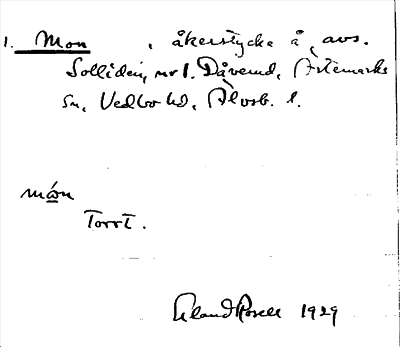 1. Mon , åkerstycke å avs.
Solliden, nr 1. Dåverud, Ärtemarks
sn, Vedbo hd, Älvsb. l.
mωn
Torrt.
Erland Rosell 1929